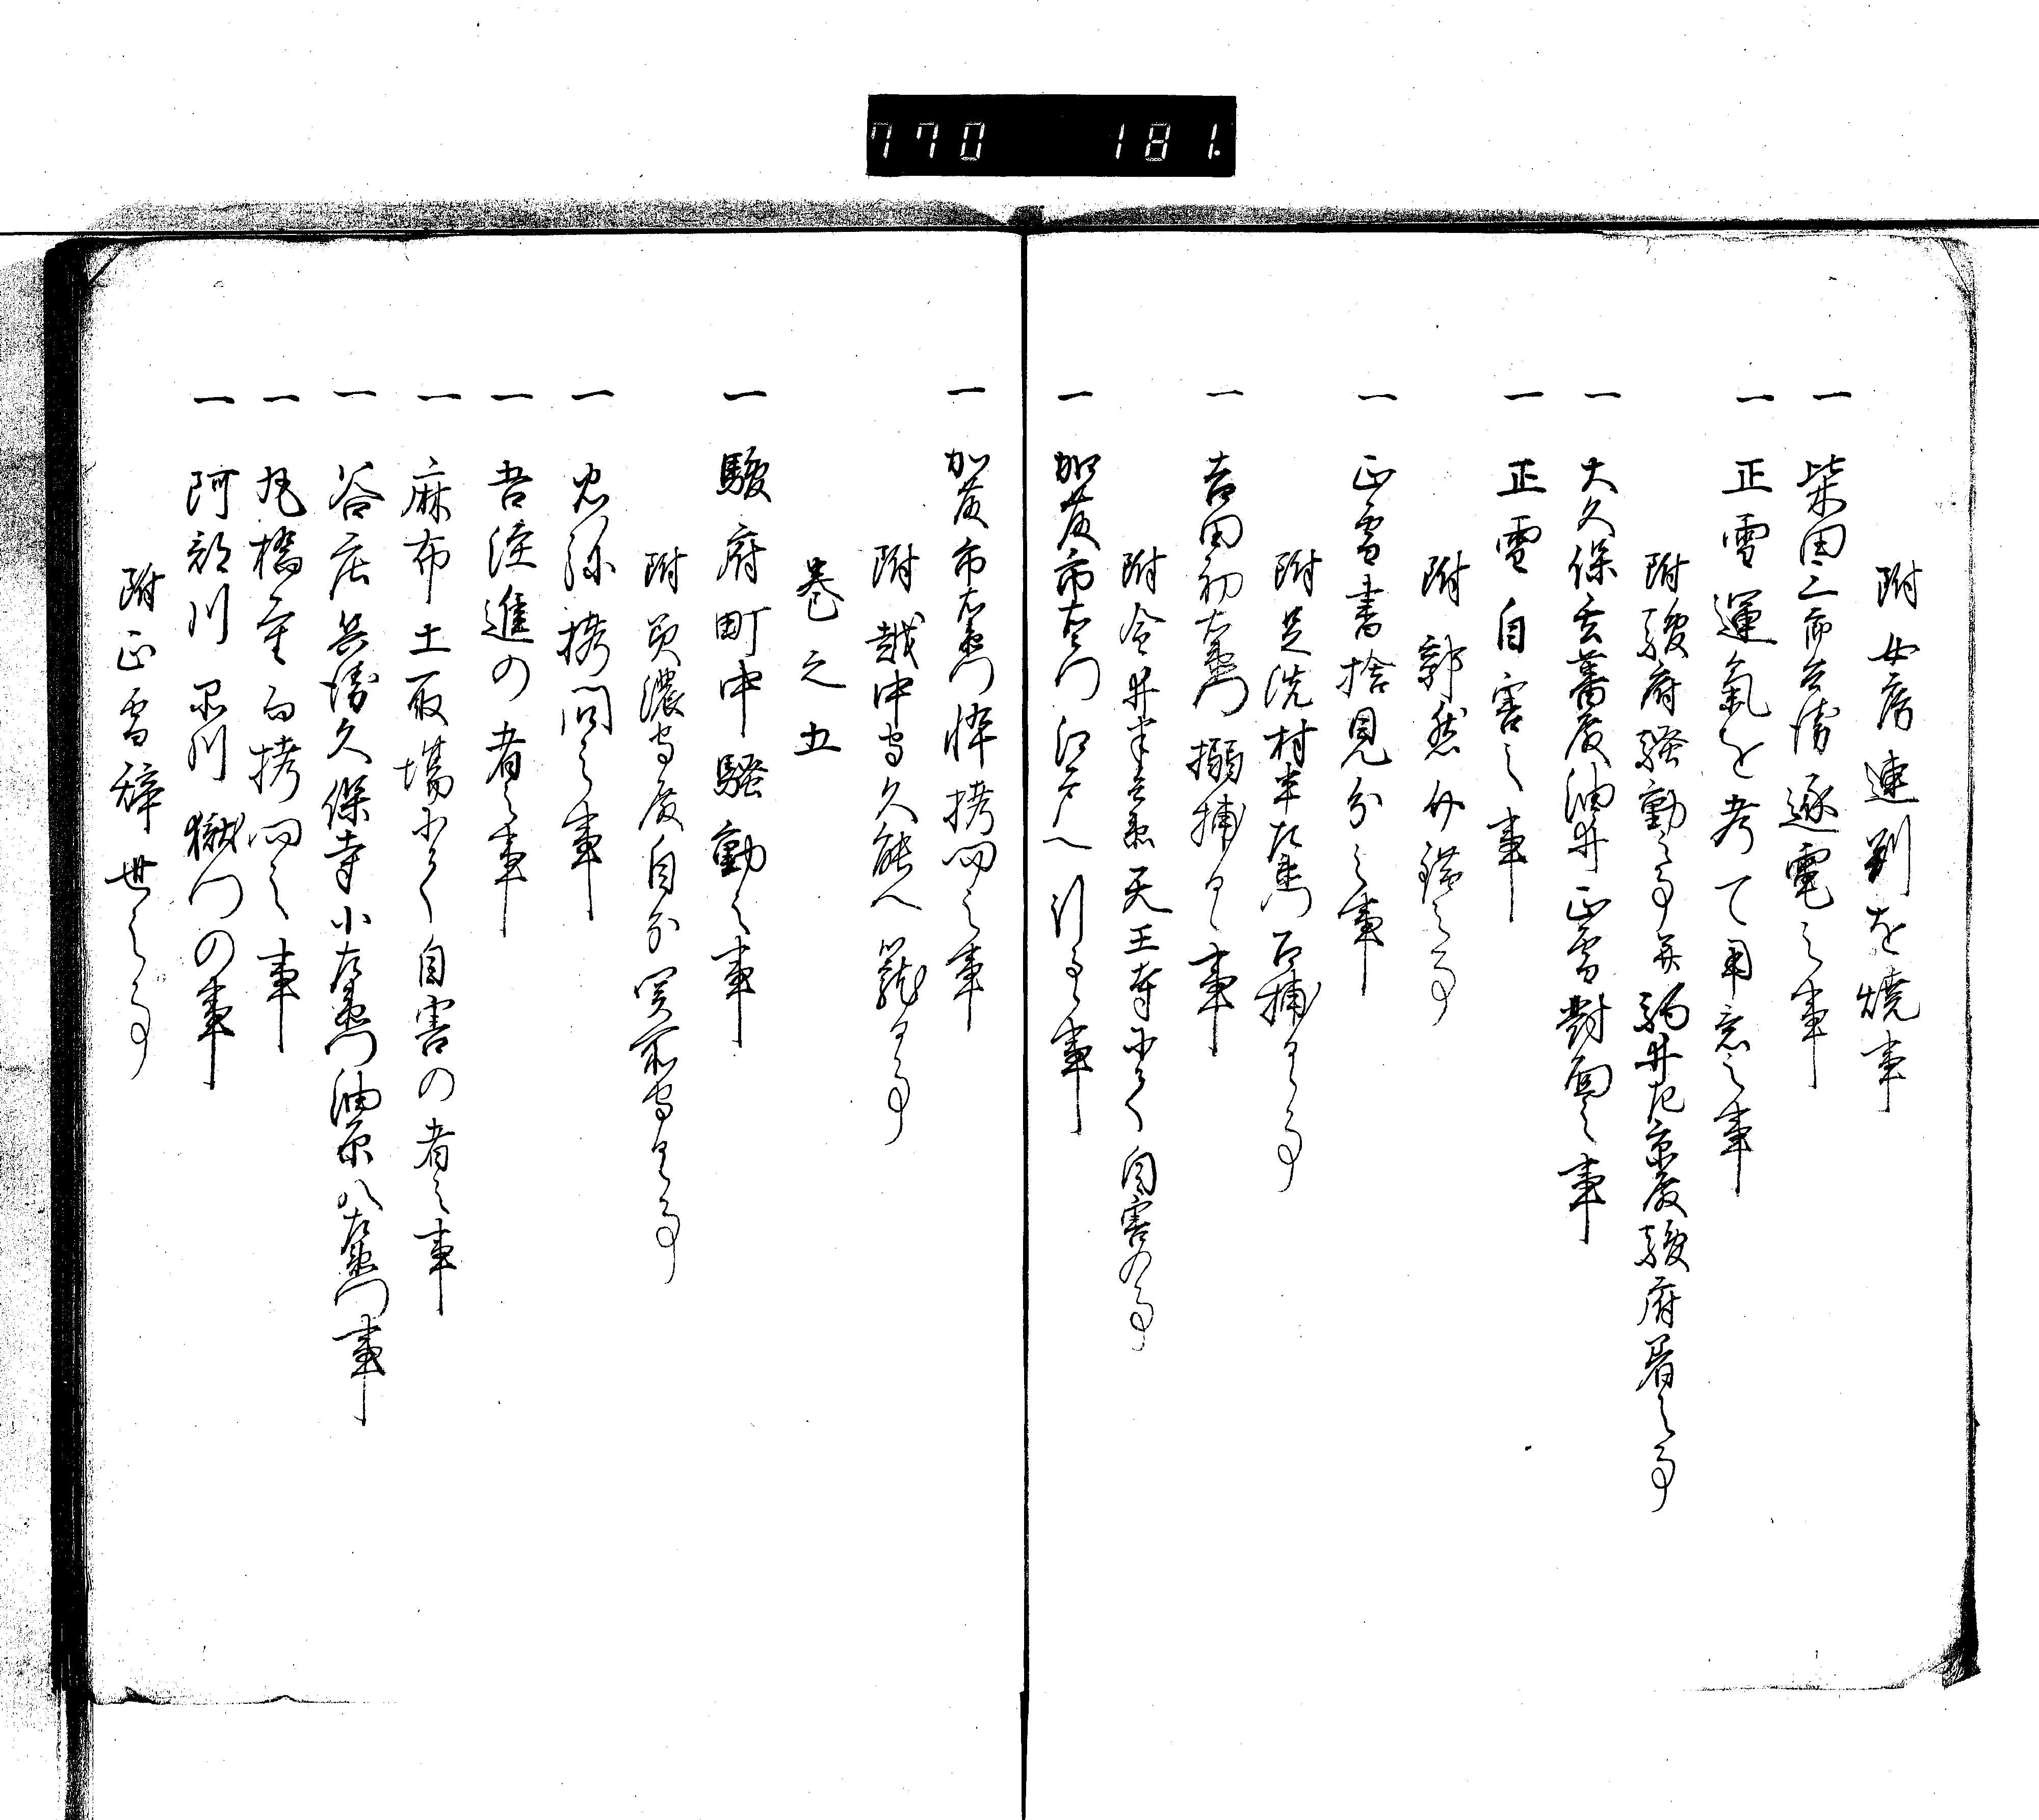 770 181.
附女房連判を焼事
一 柴田三郎兵衛逐電之事
一 正雪運氣を考て用意之事
附駿府騒動之事并駒井右京殿駿府着之事
一 大久保玄蕃殿油井正雪對面之事
一 正雪自害之事
附郭然
一 正雪書捨見分之事
附足洗村半左衛門召捕る事
一 吉田初右衛門搦捕る事
附金井半兵衛天王寺にて自害の事
一 加藤市左衛門江戸へ引る事
一 加藤市右衛門悴拷問之事
附越中守久能へ籠る事
巻之五
一 駿府町中騒動之事
附美濃守殿自分関所守る事
一 忠弥拷問之事
一 吾注進の者之事
一 麻布土取場にて自害の者之事
一 谷底兵衛久保寺小左衛門油原八左衛門事
一 丸橋重而拷問之事
一 阿部川品川獄門の事
附正雪辞世之事